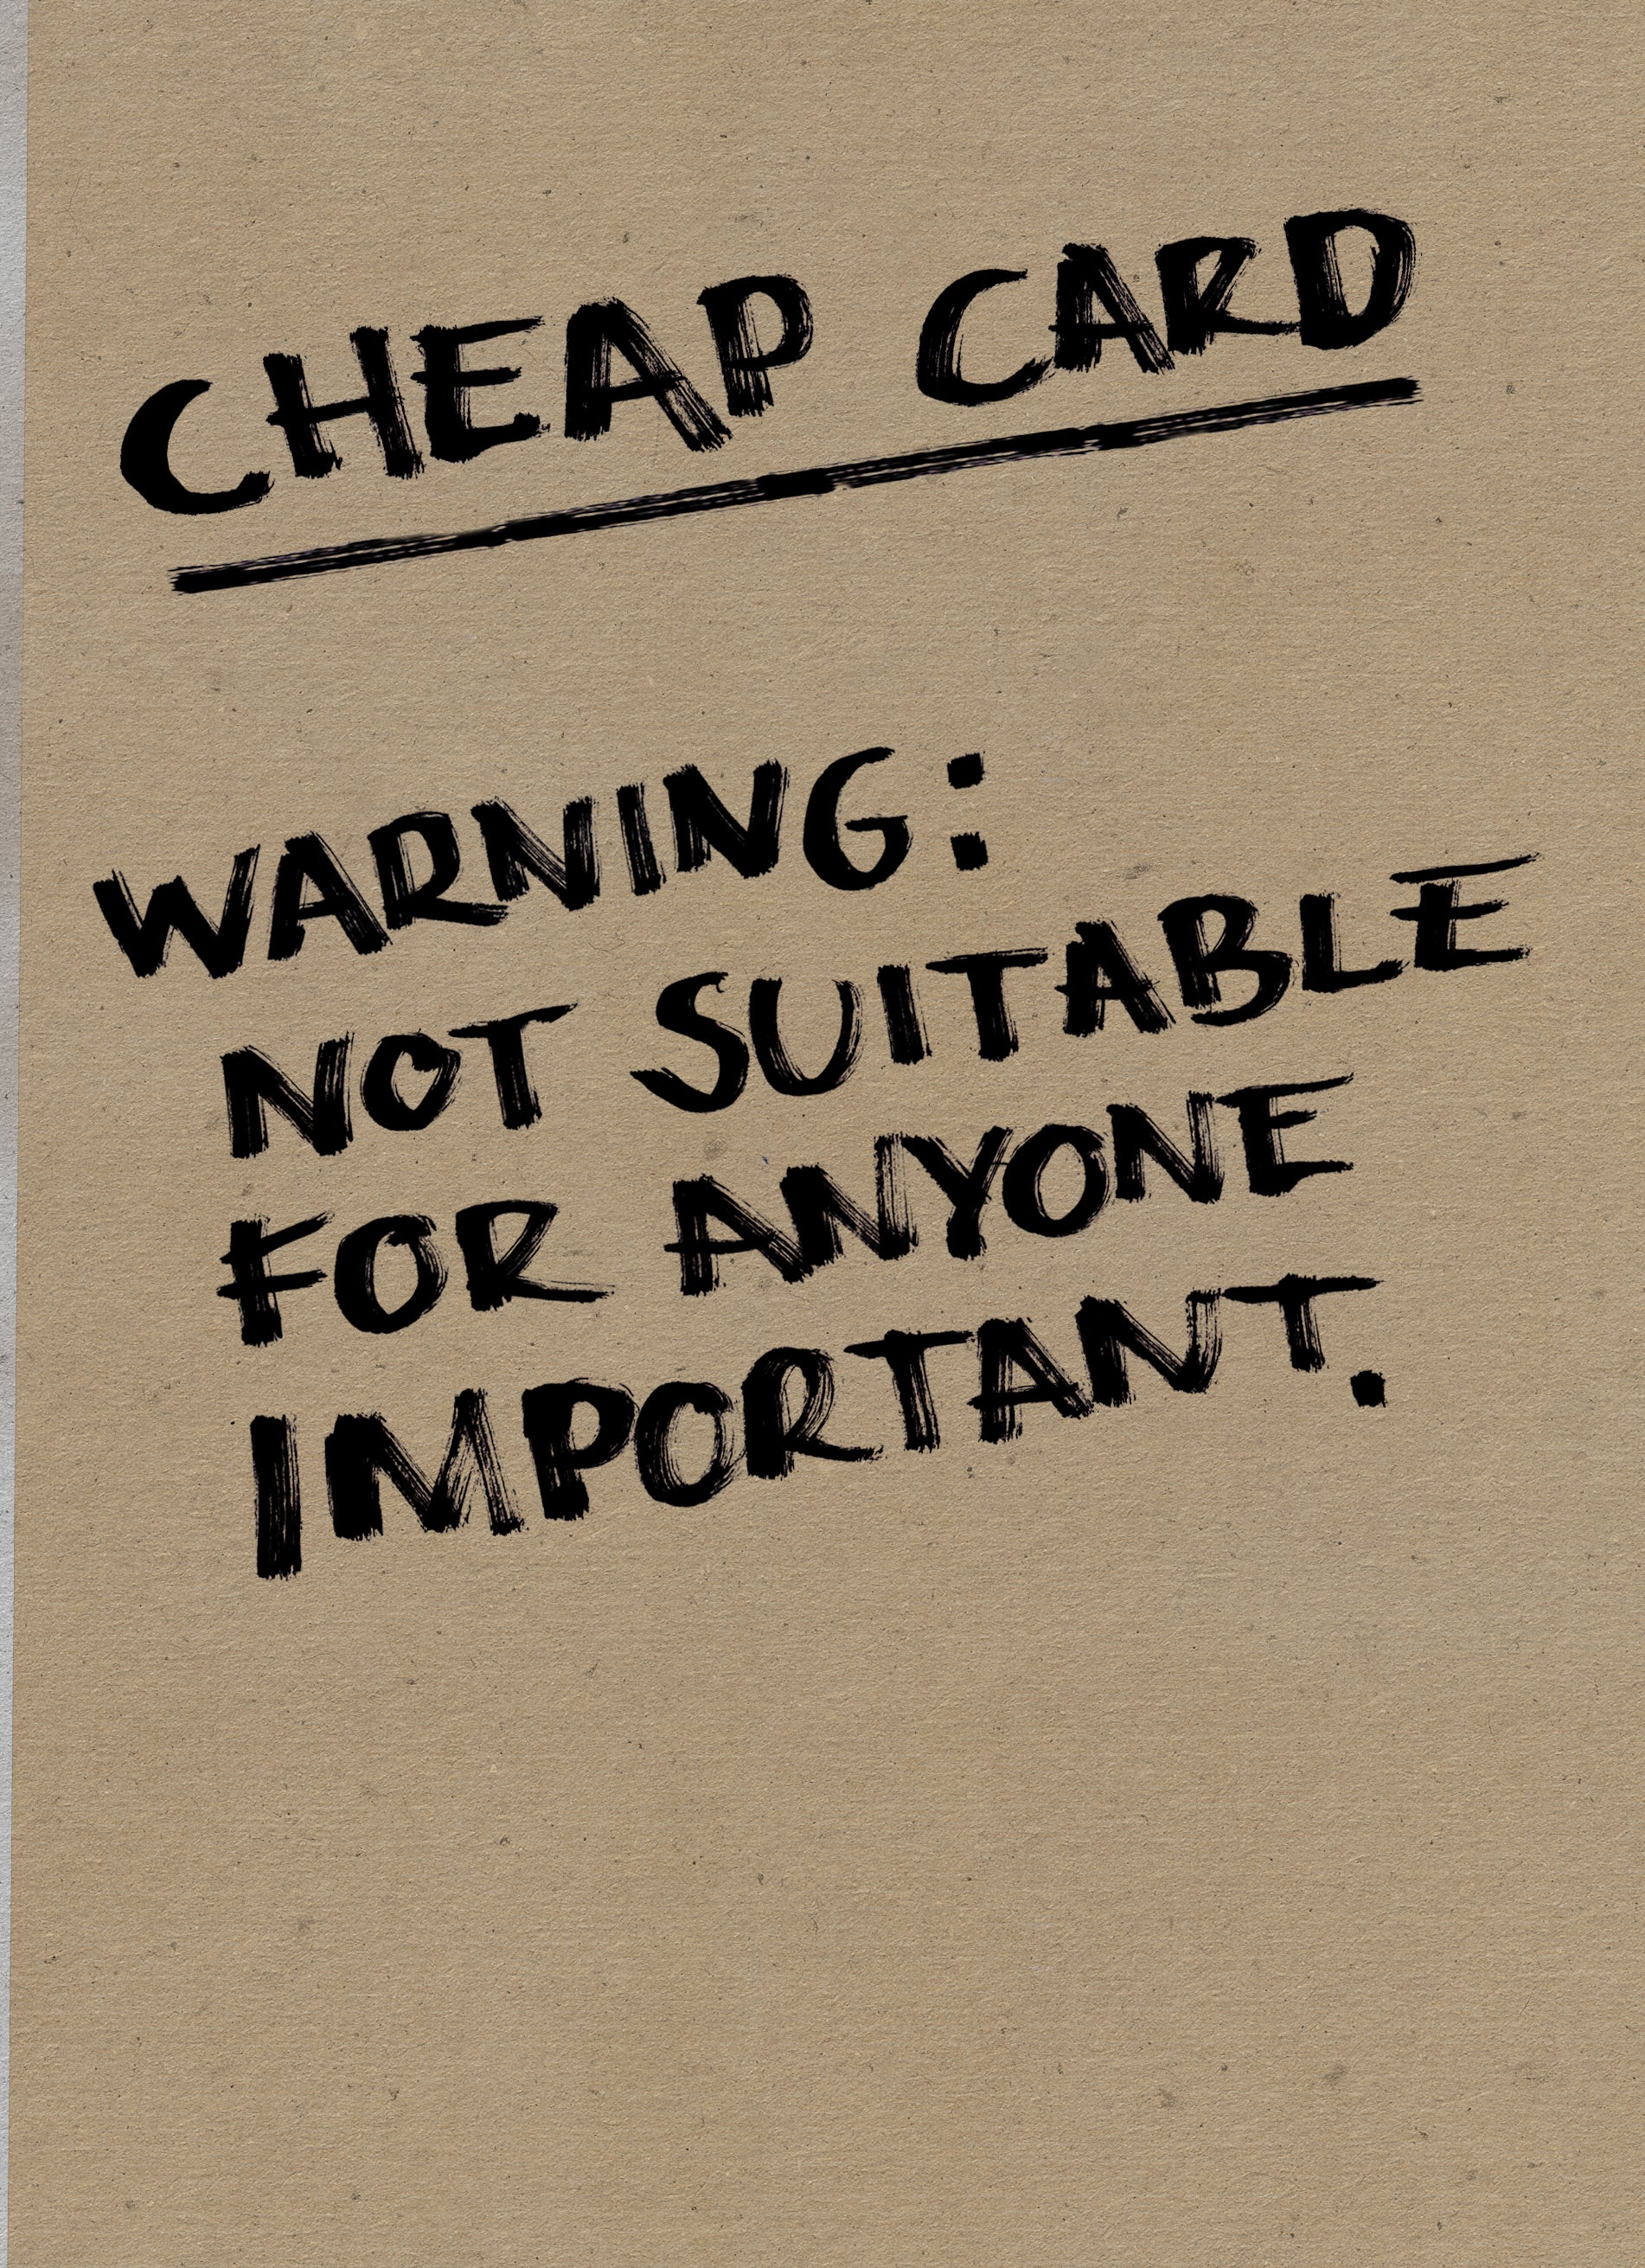 CHEAP CARD
WARNING:
NOT SUITABLE
FOR ANYONE
IMPORTANT.